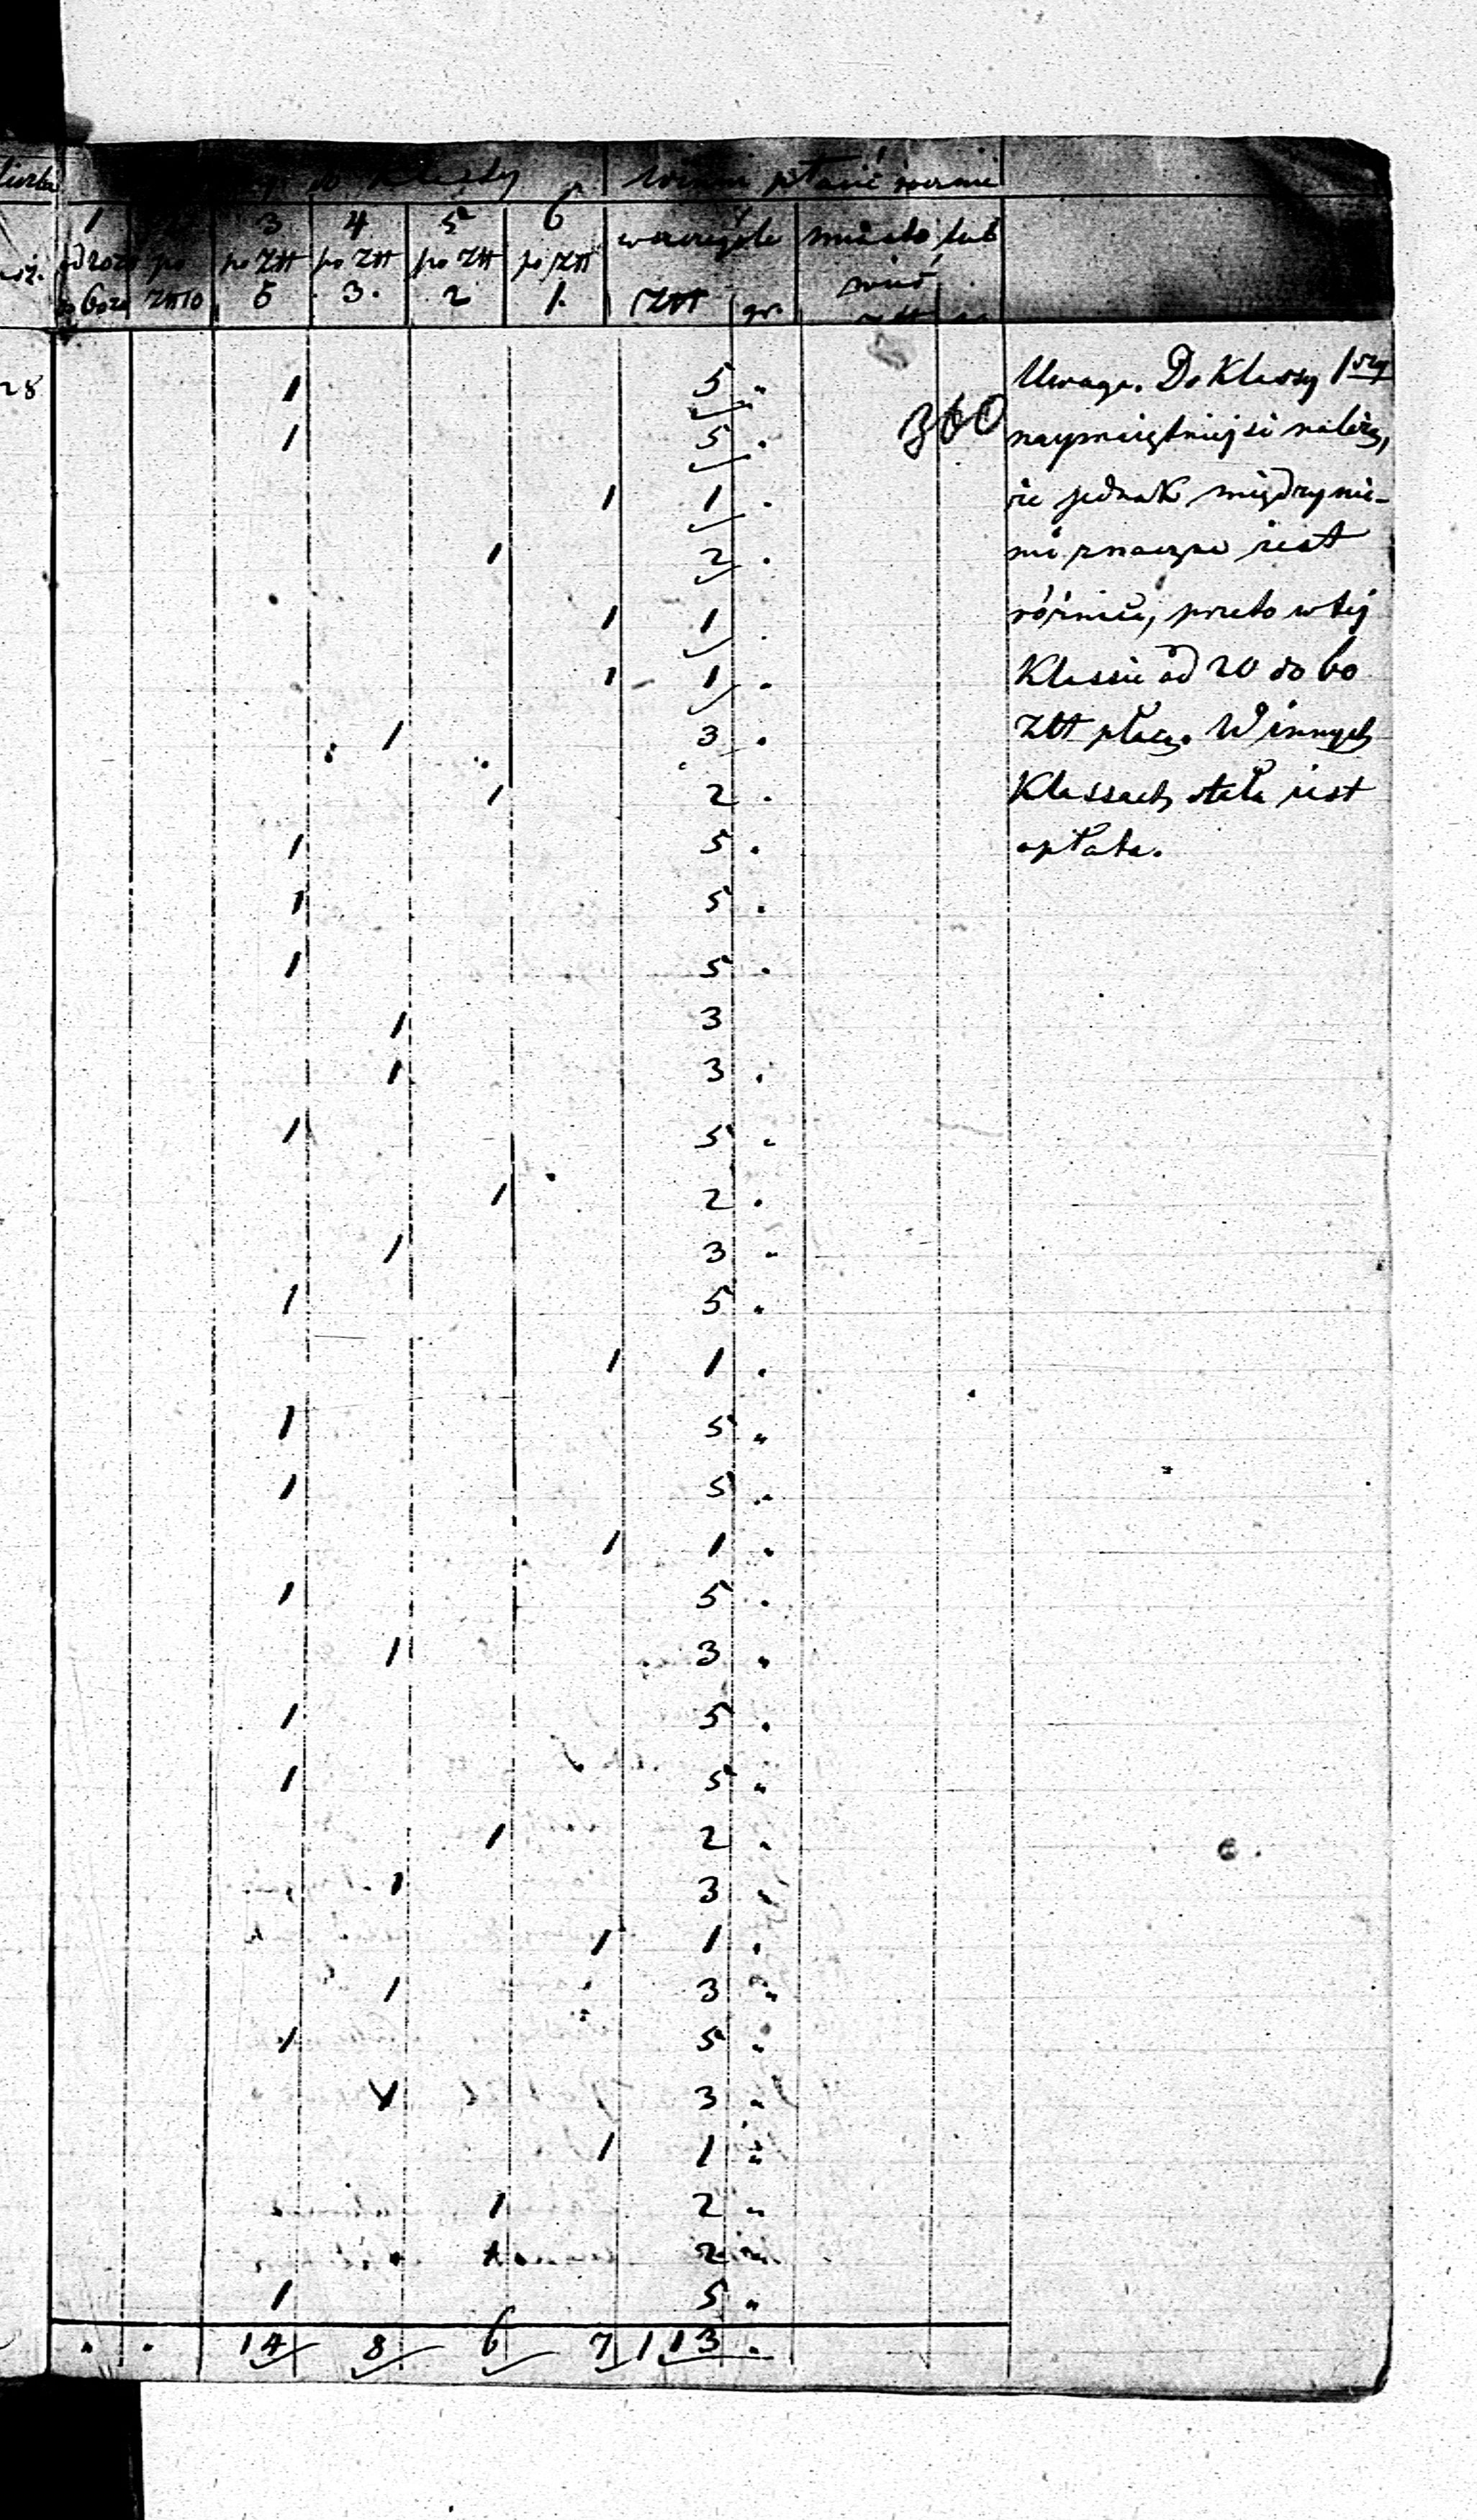 do Klassy winni płacić rocznie
1 3 4 5 6 w szczególe miasto lub
od 20 zł po po Złt po Złt po Złt po Złt wieś
do 60 zł Złt 10 5 3. 2 1. Złt gr.
28 1 5 „
1 5 .
1 1 .
1 2 .
1 1 .
1 1 .
1 3 .
1 2 .
1 5 .
1 5 .
1 5 .
1 3
1 3 .
1 5 .
1 2 .
1 3 „
1 5 .
1 1 .
1 5 „
1 5 „
1 1 .
1 5 .
1 3 .
1 5 .
1 5 „
1 2 .
1 3 „
1 1 .
1 3 „
1 5 „
1 3 „
1 1 „
1 2 „
1 2 „
1 5 „
. . 14 8 6 7 113 .
360
Uwaga. Do Klassy 1szy
naymaiętniejsi należą,
że jednak między nie-
mi znaczna iest
różnica, przeto w tej
Klassie od 20 do 60
Złt płacą. W innych
Klassach stała iest
opłata.